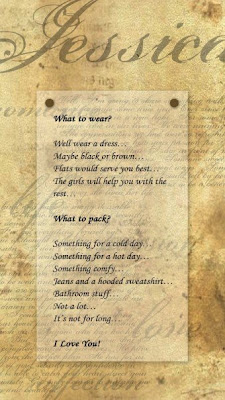 Jessica
What to wear?
Well wear a dress…
Maybe black or brown…
Flats would serve you best…
The girls will help you with the
rest…
What to pack?
Something for a cold day…
Something for a hot day…
Something comfy…
Jeans and a hooded sweatshirt…
Bathroom stuff…
Not a lot…
It's not for long…
I Love You!